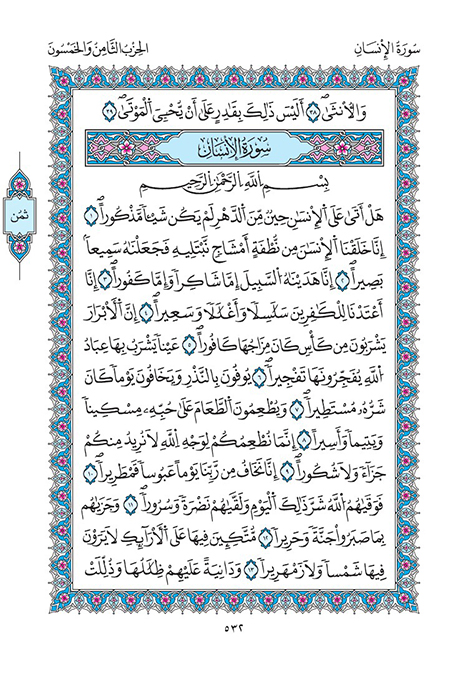 سُورَةُ الْإِنسَانِ
الحِزْبُ الثَّامِنُ وَالخَمْسُونَ
وَالْأُنثَىٰٓ ۝٣٨ أَلَيْسَ ذَٰلِكَ بِقَٰدِرٍ عَلَىٰٓ أَنْ يُّحْـِۧيَ ٱلْمَوْتَىٰ ۝٣٩
سُورَةُ الْإِنسَانِ
بِسْمِ ٱللَّهِ ٱلرَّحْمَٰنِ ٱلرَّحِيمِ
هَلْ أَتَىٰ عَلَى ٱلْإِنسَٰنِ حِينٌ مِّنَ ٱلدَّهْرِ لَمْ يَكُن شَيْـًٔا مَّذْكُورًا ۝١
إِنَّا خَلَقْنَا ٱلْإِنسَٰنَ مِن نُّطْفَةٍ أَمْشَاجٍ نَّبْتَلِيهِ فَجَعَلْنَٰهُ سَمِيعًۢا
بَصِيرًا ۝٢ إِنَّا هَدَيْنَٰهُ ٱلسَّبِيلَ إِمَّا شَاكِرًا وَإِمَّا كَفُورًا ۝٣ إِنَّآ
أَعْتَدْنَا لِلْكَٰفِرِينَ سَلَٰسِلًا وَأَغْلَٰلًا وَسَعِيرًا ۝٤ إِنَّ ٱلْأَبْرَارَ
يَشْرَبُونَ مِن كَأْسٍ كَانَ مِزَاجُهَا كَافُورًا ۝٥ عَيْنًا يَشْرَبُ بِهَا عِبَادُ
ٱللَّهِ يُفَجِّرُونَهَا تَفْجِيرًا ۝٦ يُوفُونَ بِالنَّذْرِ وَيَخَافُونَ يَوْمًا كَانَ
شَرُّهُۥ مُسْتَطِيرًا ۝٧ وَيُطْعِمُونَ ٱلطَّعَامَ عَلَىٰ حُبِّهِۦ مِسْكِينًا
وَيَتِيمًا وَأَسِيرًا ۝٨ إِنَّمَا نُطْعِمُكُمْ لِوَجْهِ ٱللَّهِ لَا نُرِيدُ مِنكُمْ
جَزَآءً وَلَا شُكُورًا ۝٩ إِنَّا نَخَافُ مِن رَّبِّنَا يَوْمًا عَبُوسًا قَمْطَرِيرًا ۝١٠
فَوَقَىٰهُمُ ٱللَّهُ شَرَّ ذَٰلِكَ ٱلْيَوْمِ وَلَقَّىٰهُمْ نَضْرَةً وَسُرُورًا ۝١١ وَجَزَىٰهُم
بِمَا صَبَرُوا جَنَّةً وَحَرِيرًا ۝١٢ مُّتَّكِـِٔينَ فِيهَا عَلَى ٱلْأَرَآئِكِ لَا يَرَوْنَ
فِيهَا شَمْسًا وَلَا زَمْهَرِيرًا ۝١٣ وَدَانِيَةً عَلَيْهِمْ ظِلَٰلُهَا وَذُلِّلَتْ
ثُمُن
٥٣٢